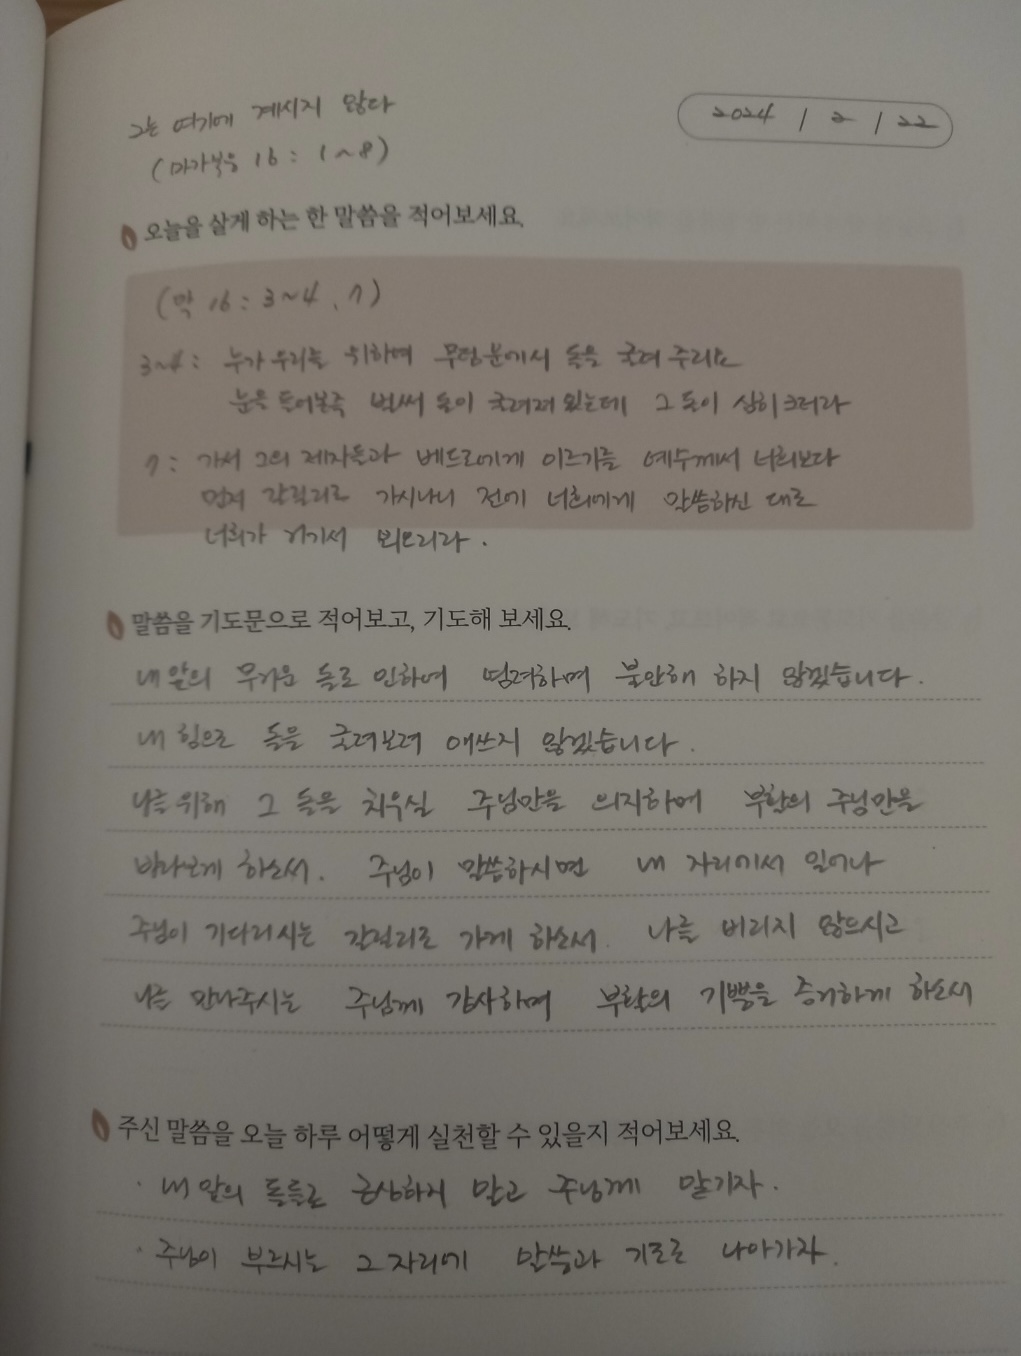 그는 여기에 계시지 않다
(마가복음 16 : 1~8)
2024 / 2 / 22
오늘을 살게 하는 한 말씀을 적어보세요.
(막 16 : 3~4, 7)
3~4 : 누가 우리를 위하여 무덤문에서 돌을 굴려 주리요
눈을 들어본즉 벌써 돌이 굴려져 있는데 그 돌이 심히 크더라
7 : 가서 그의 제자들과 베드로에게 이르기를 예수께서 너희보다
먼저 갈릴리로 가시나니 전에 너희에게 말씀하신 대로
너희가 거기서 뵈오리라.
말씀을 기도문으로 적어보고, 기도해 보세요.
내 앞의 무거운 돌로 인하여 염려하며 불안해 하지 않겠습니다.
내 힘으로 돌을 굴려보려 애쓰지 않겠습니다.
나를 위해 그 돌을 치우실 주님만을 의지하며 부활의 주님만을
바라보게 하소서. 주님이 말씀하시면 내 자리에서 일어나
주님이 기다리시는 갈릴리로 가게 하소서. 나를 버리지 않으시고
나를 만나주시는 주님께 감사하며 부활의 기쁨을 증거하게 하소서
주신 말씀을 오늘 하루 어떻게 실천할 수 있을지 적어보세요.
· 내 앞의 돌들로 근심하지 말고 주님께 맡기자.
· 주님이 부르시는 그 자리에 말씀과 기도로 나아가자.